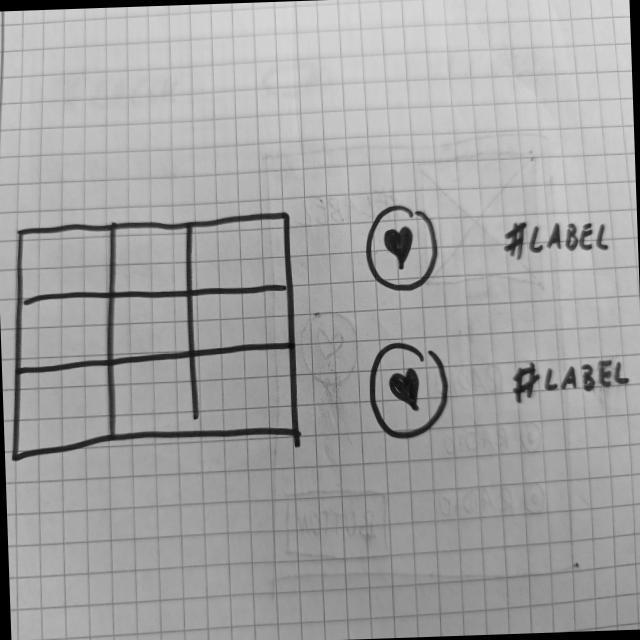 #LABEL
#LABEL